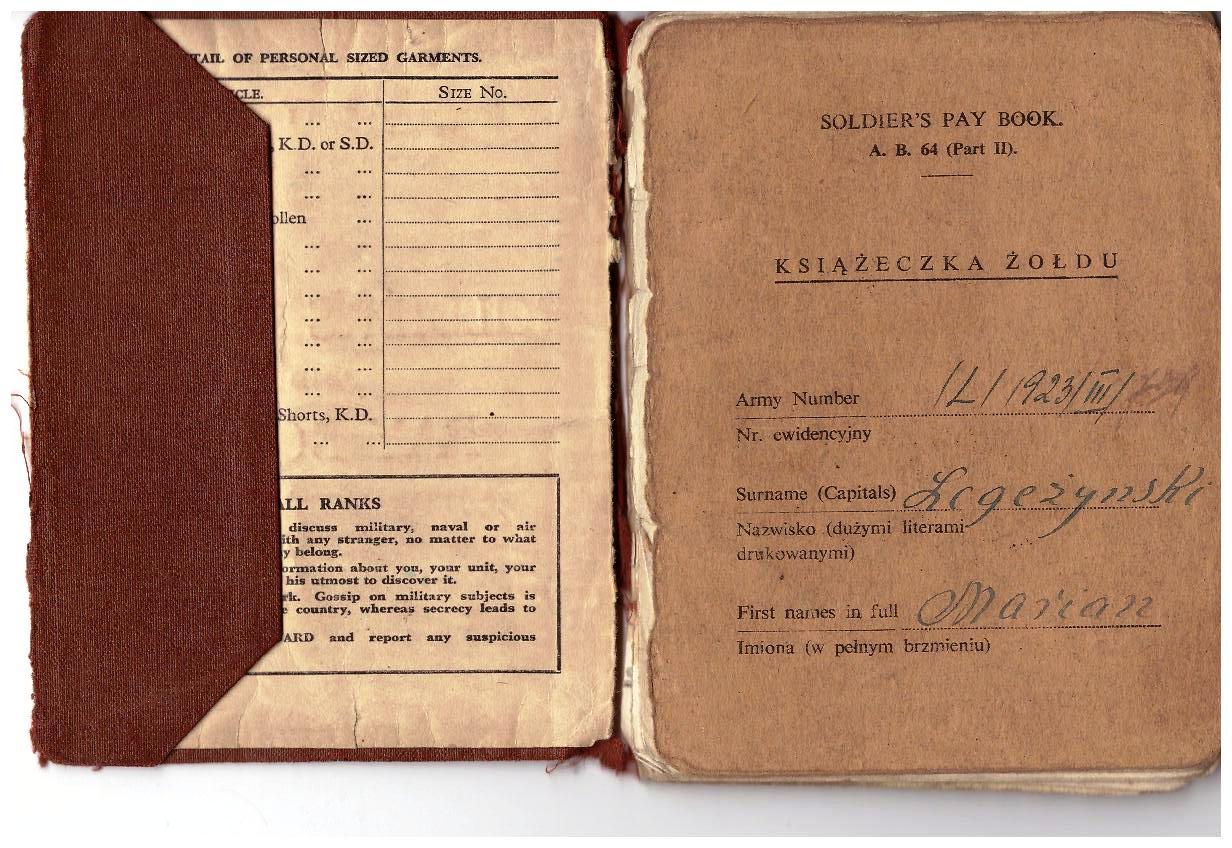 TAIL OF PERSONAL SIZED GARMENTS.
CLE. SIZE No.
... ...
, K.D. or S.D.
... ...
... ...
ollen ...
... ...
... ...
... ...
... ...
... ...
... ...
Shorts, K.D.
... ...
ALL RANKS
discuss military, naval or air
ith any stranger, no matter to what
y belong.
ormation about you, your unit, your
his utmost to discover it.
rk. Gossip on military subjects is
e country, whereas secrecy leads to
ARD and report any suspicious
SOLDIER'S PAY BOOK.
A. B. 64 (Part II).
KSIĄŻECZKA ŻOŁDU
Army Number /L/ 1923/III/
Nr. ewidencyjny
Surname (Capitals) Legeżynski
Nazwisko (dużymi literami
drukowanymi)
First names in full Marian
Imiona (w pełnym brzmieniu)